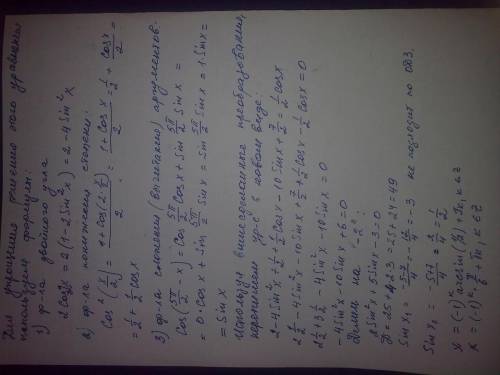 Для упрощения решения этого уравнения
используем формулы:
1) ф-ла двойного угла
2cos2x = 2(1-2Sin²x) = 2-4Sin²x
2) ф-ла понижения степени:
Cos²(x/2) = (1+Cos(2·x/2))/2 = (1+Cosx)/2 = 1/2 + Cosx/2 =
= 1/2 + 1/2 Cosx
3) ф-ла сложения (вычитания) аргументов:
Cos(5π/2 - x) = Cos 5π/2 Cosx + Sin 5π/2 Sinx =
= 0·Cosx + Sin 5π/2 Sinx = Sin π/2 Sinx = 1·Sinx =
= Sinx
Используя вышеописанные преобразования,
перепишем ур-е в новом виде:
2-4Sin²x + 1/2 + 1/2 Cosx - 10Sinx + 7/2 = 1/2 cosx
2 1/2 - 4Sin²x - 10Sinx + 7/2 + 1/2 Cosx - 1/2 Cosx = 0
2 1/2 + 3 1/2 - 4Sin²x - 10Sinx = 0
-4Sin²x - 10Sinx + 6 = 0
Делим на "-2":
2Sin²x + 5Sinx - 3 = 0
D = 25+4·2·3 = 25+24 = 49
Sinx₁ = (-5-7)/4 = -12/4 = -3 не подходит по ОДЗ.
Sinx₂ = (-5+7)/4 = 2/4 = 1/2
x = (-1)ᵏ arcsin(1/2) + πk, k∈Z
x = (-1)ᵏ π/6 + πk, k∈Z